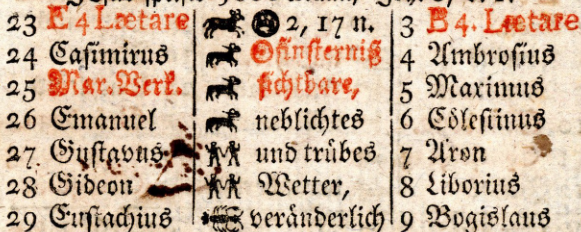 23 E 4 Lætare 2, 17 n. 3 B 4. Lætare
24 Casimirus Ofinsterniß 4 Ambrosius
25 Mar. Verk. sichtbare, 5 Maximus
26 Emanuel neblichtes 6 Cölestinus
27 Gustavus und trübes 7 Aron
28 Gideon Wetter, 8 Liborius
29 Eustachius veränderlich 9 Bogislaus